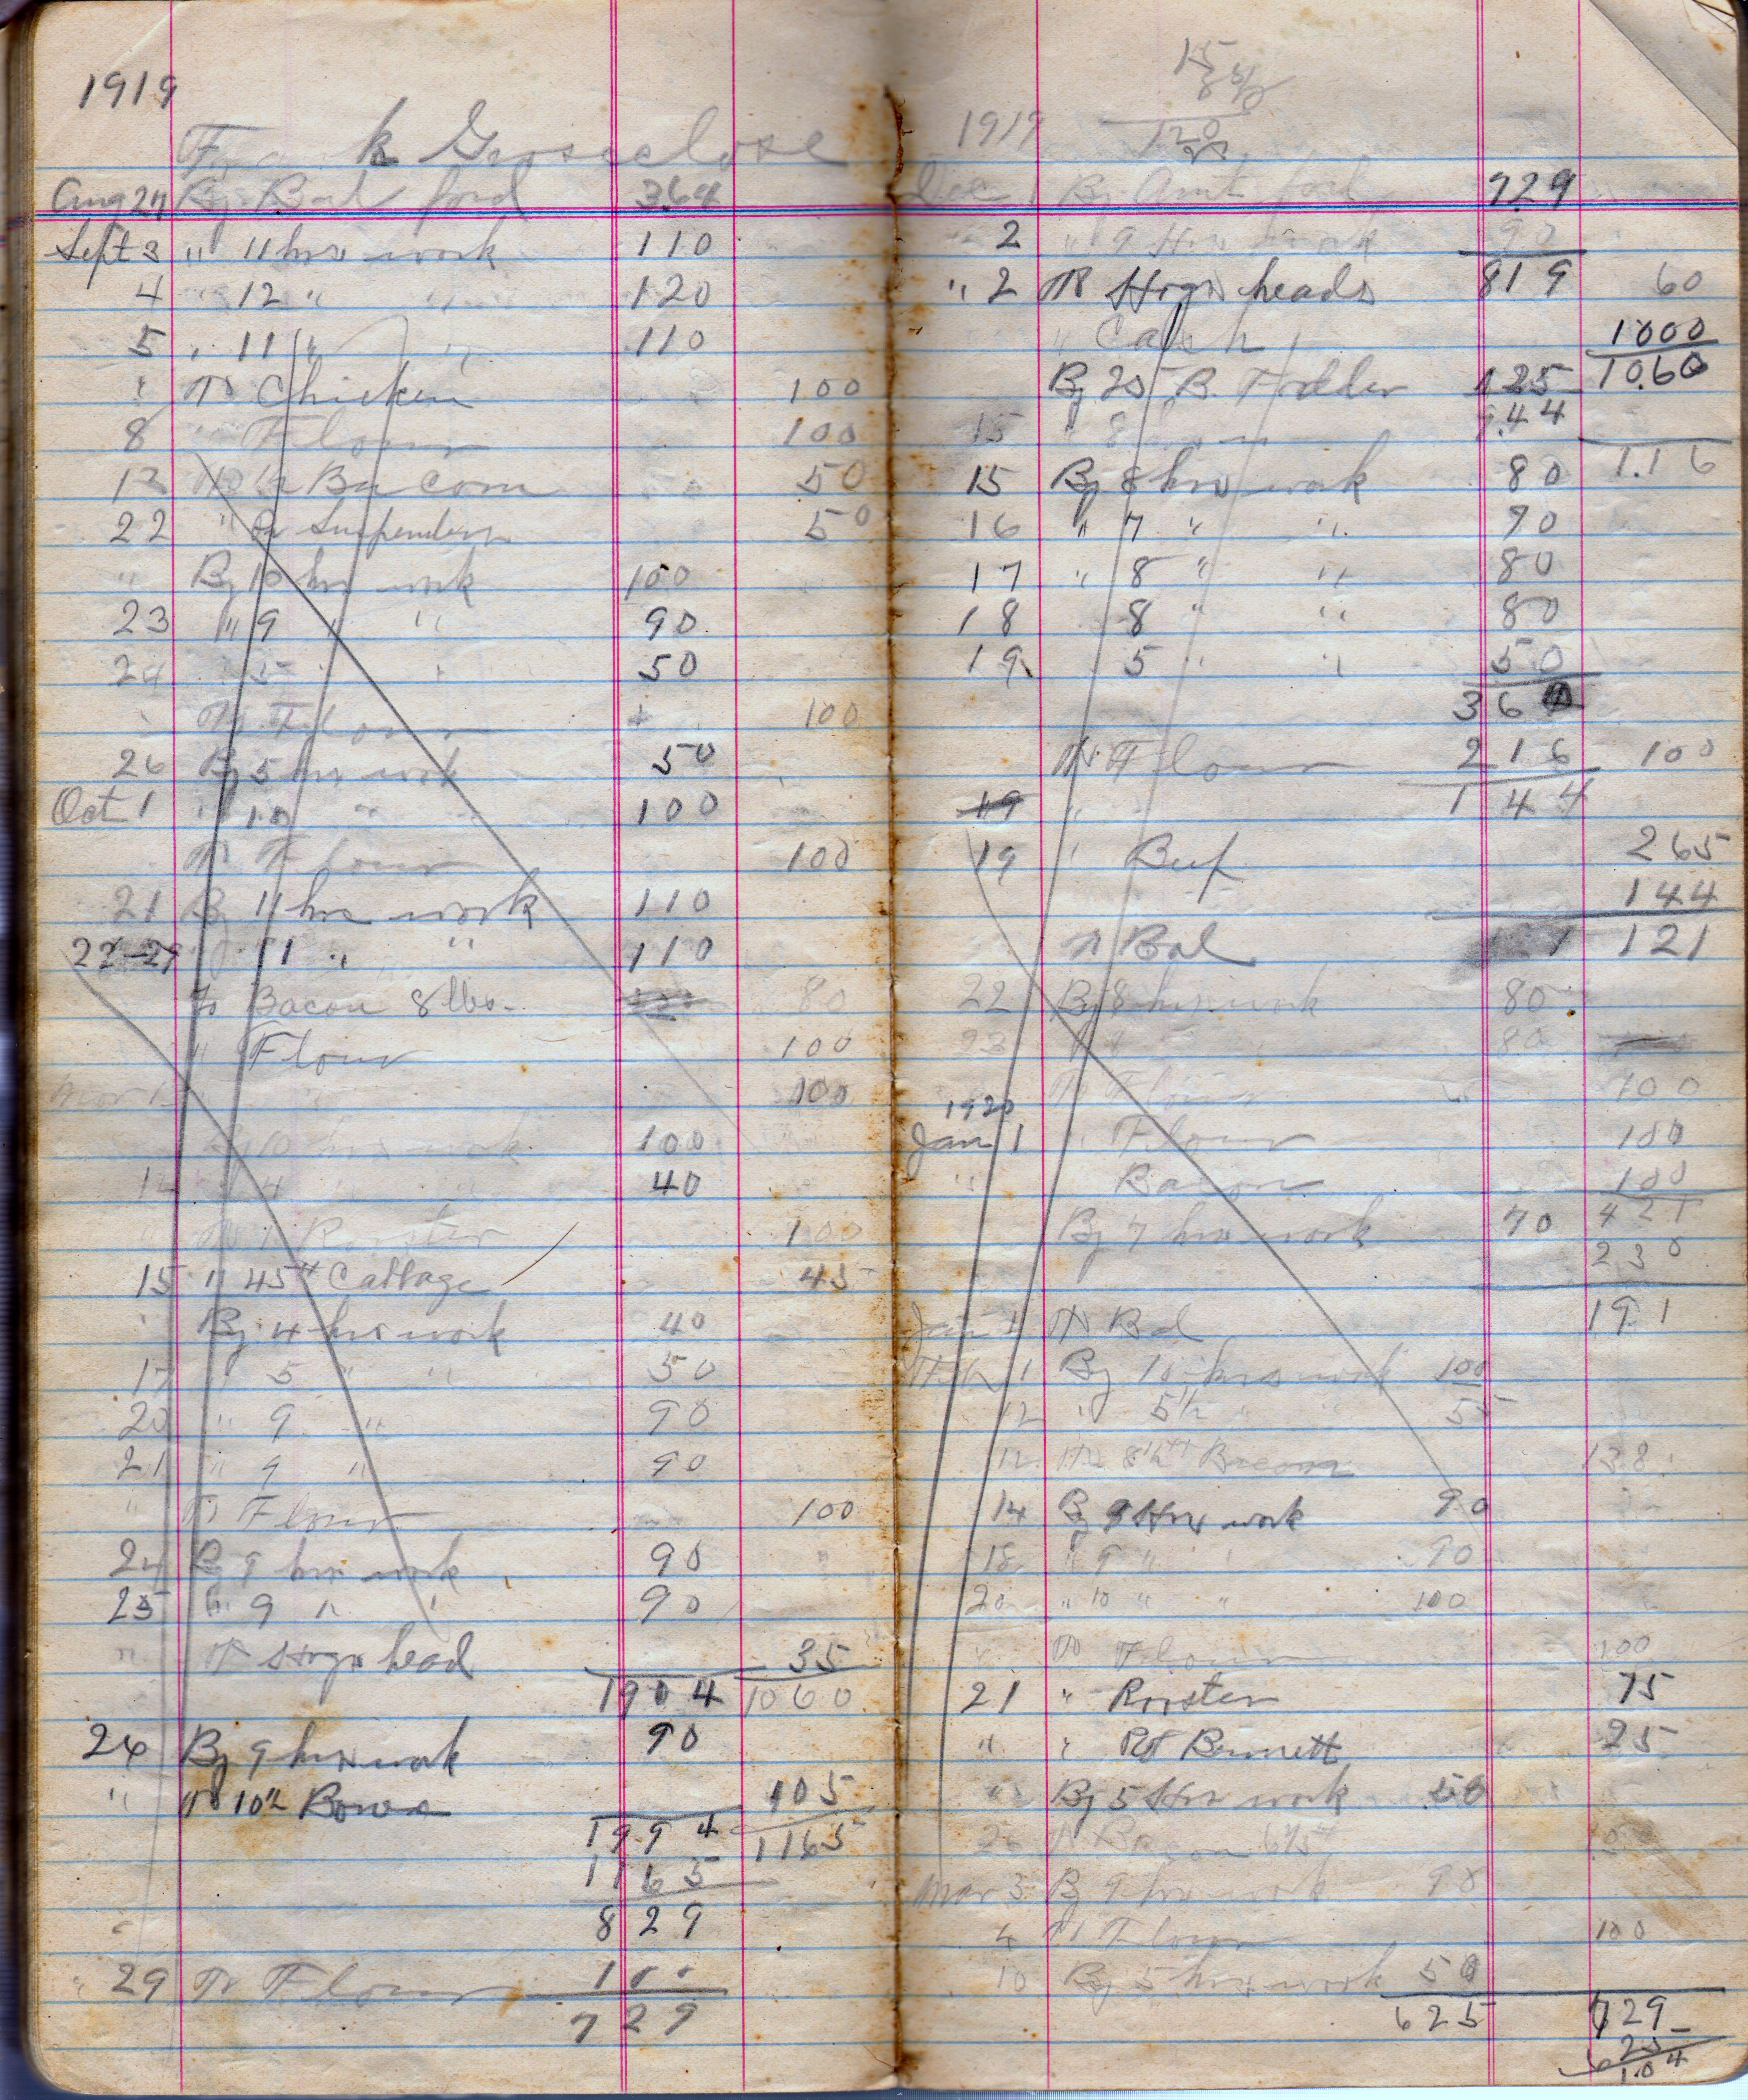 1919
Frank Groseclose
Aug 27 By Bal ford 364
Sept 3 " 11 hrs work 110
4 " 12 " " 120
5 " 11 " " 110
" To Chicken 100
8 " Flour 100
12 To Bacon 50
22 " Suspenders 50
" By 10 hrs work 100
23 " 9 " " 90
24 " 5 " " 50
" To Flour 100
26 By 5 hrs work 50
Oct 1 " 10 " 100
To Flour 100
21 By 11 hrs work 110
22-27 " 11 " " 110
to Bacon 8 lbs. 80
" Flour 100
100
By 10 hrs work 100
14 " 4 " " 40
" To 1 Rooster 100
15 " 45# Cabbage 45
" By 4 hrs work 40
17 " 5 " " 50
20 " 9 " 90
21 " 9 " 90
" To Flour 100
24 By 9 hrs work 90
25 " 9 " " 90
" To Hogs head 35
1904 1060
26 By 9 hrs work 90
" To 10½ 105
1994 1165
1165
829
" 29 To Flour 100
729
15
120
1919
Dec 1 By Amt ford 729
2 " 9 Hrs work 90
" 2 To Hogs heads 819 60
" Cash 1000
By 25 B. Fodder 125 1060
15 " 8 944
1.16
15 By 8 hrs work 80
16 " 7 " " 70
17 " 8 " " 80
18 8 " " 80
19 5 " " 50
360
To Flour 216 100
19 " 144
19 " Beef 265
144
To Bal 121
22 By 8 hrs work 80
23 " 80
To Flour 100
1920
Jan 1 " Flour 100
" Bacon 100
By 7 hrs work 70 421
230
191
Jan 1 To Bal
Feb 1 By 10 hrs work 100
12 " 5½ " " 55
12 To 8½# Bacon 138
14 By 9 Hrs work 90
18 " 9 " " 90
20 " 10 " " 100
" To Flour 100
21 " Rooster 75
" " Bennett 25
" By 5 Hrs work 50
26 To Bacon
Mar 3 By 9 hrs work 90
4 To Flour 100
10 By 5 hrs work 50
625 729
625
104